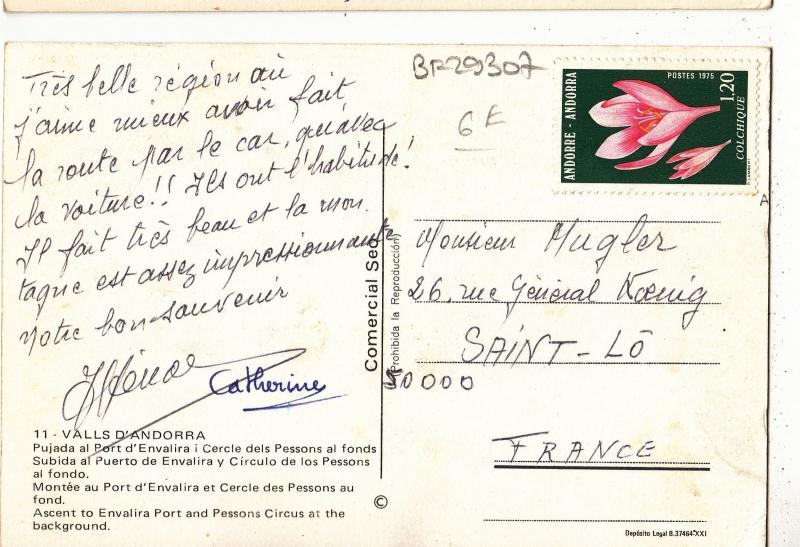 Très belle région où
j'aime mieux avoir fait
la route par le car, qu'avec
la voiture!! Ils ont l'habitude!
Il fait très beau et la mon
tagne est assez impressionnante
Notre bon souvenir
Catherine
11 - VALLS D'ANDORRA
Pujada al Port d'Envalira i Cercle dels Pessons al fonds
Subida al Puerto de Envalira y Círculo de los Pessons
al fondo.
Montée au Port d'Envalira et Cercle des Pessons au
fond.
Ascent to Envalira Port and Pessons Circus at the
background.
Comercial Seo
(Prohibida la Reproducción)
©
BR29307
6E
ANDORRE - ANDORRA
POSTES 1975
1,20
COLCHIQUE
Monsieur Hugler
26, rue Général Koenig
SAINT-LÔ
50000
FRANCE
Depósito Legal B.37464-XXI